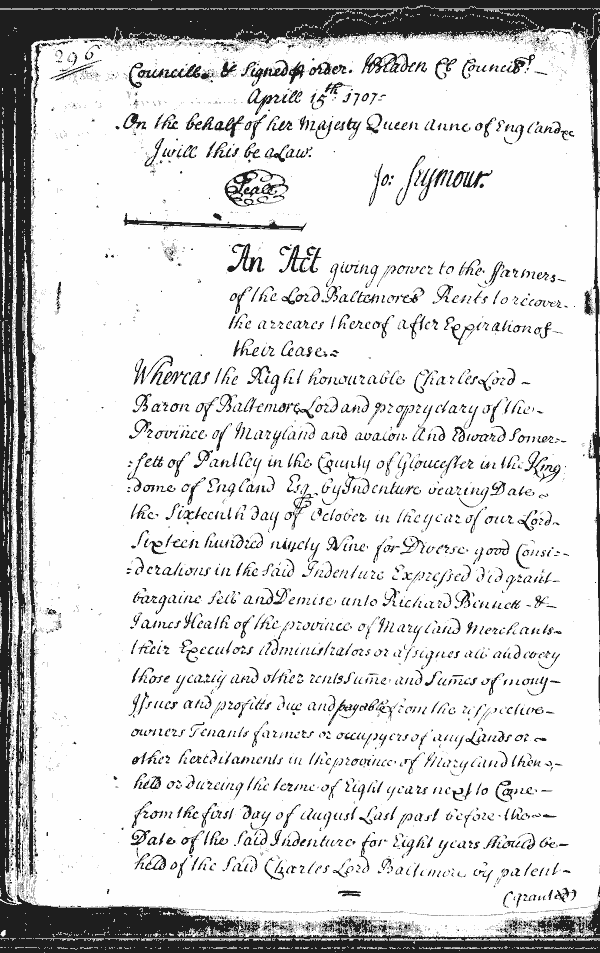 296
Councill & Signed p order. WBladen Cl Councill.
Aprill 15th 1707=
On the behalf of her Majesty Queen Anne of England &c
I will this be a Law.
Seale
Jo: Seymour.
An Act giving power to the ffarmers
of the Lord Baltemores Rents to recover
the arreares thereof after Expiration of
their lease.
Whereas the Right honourable Charles Lord
Baron of Baltemore Lord and propryetary of the
Province of Maryland and avalon and Edward Somer=
=sett of Pantley in the County of Gloucester in the King
=dome of England Esq by Indenture bearing Date
the Sixteenth day of October in the year of our Lord
Sixteen hundred ninety Nine for Diverse good Consi=
=derations in the said Indenture Expressed did grant
bargaine sell and Demise unto Richard Bennett &
James Heath of the province of Maryland Merchants
their Executors Administrators or assignes all and every
those yearly and other rents Sume and Sumes of mony
Issues and profitts due and payable from the respective
owners Tenants farmers or occupyers of any Lands or
other hereditaments in the province of Maryland then
held or dureing the terme of Eight years next to Come
from the first Day of August Last past before the
Date of the said Indenture for Eight years should be
held of the said Charles Lord Baltimore by patent
(granted)